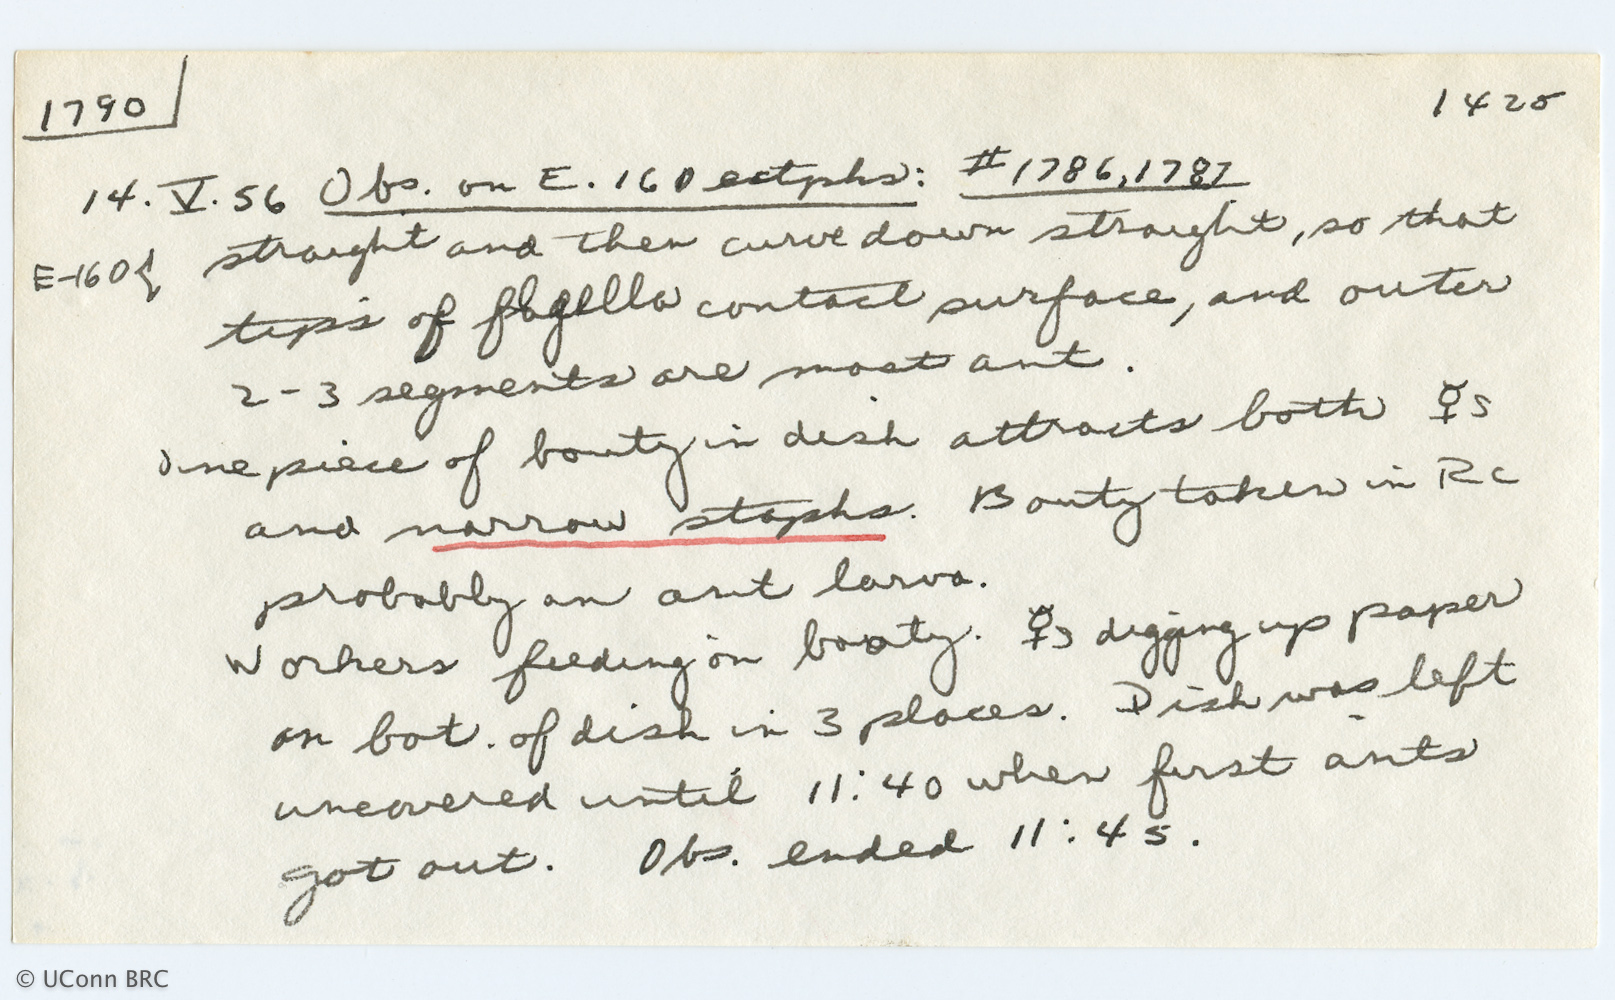 1790
1425
14.V.56 Obs. on E. 160 ectphs: #1786, 1787
E-160{ straight and then curve down straight, so that
tips of flagella contact surface, and outer
2-3 segments are most ant.
One piece of booty in dish attracts both ☿s
and narrow staphs. Booty taken in Rc
probably an ant larva.
Workers feeding on booty. ☿s digging up paper
on bot. of dish in 3 places. Dish was left
uncovered until 11:40 when first ants
got out. Obs. ended 11:45.
© UConn BRC